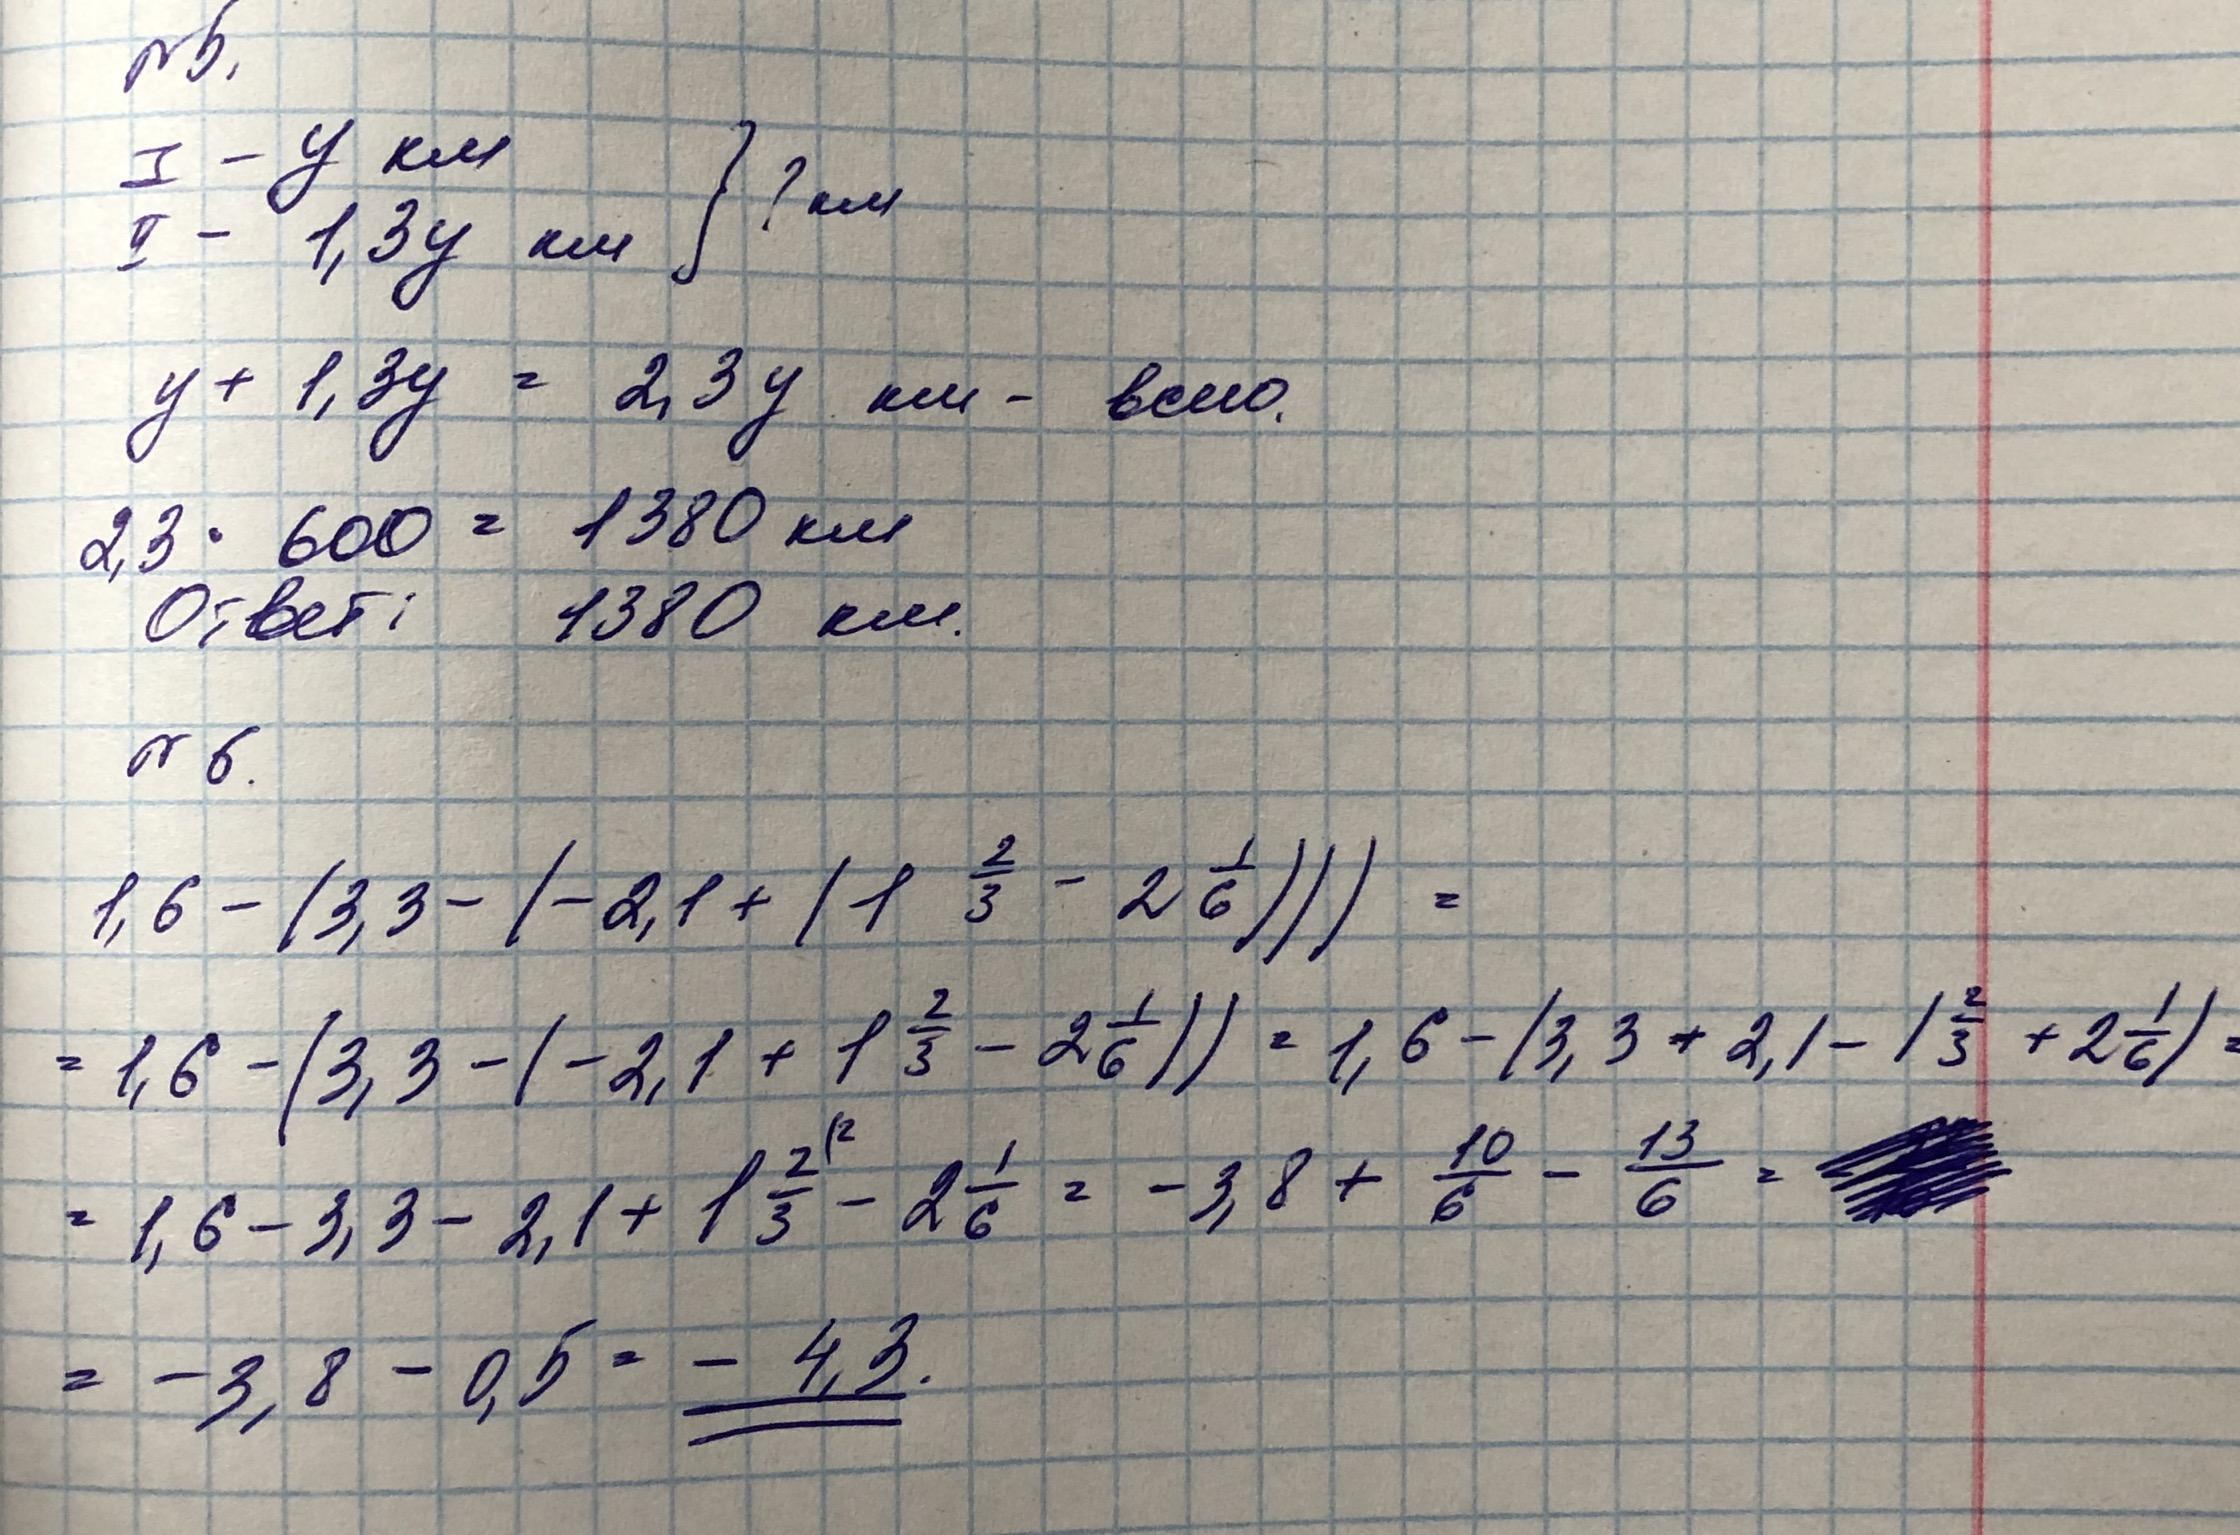 №5.
I – y км
II – 1,3y км } ? км
y + 1,3y = 2,3y км - всего.
2,3 · 600 = 1380 км
Ответ: 1380 км.
№6.
1,6 - (3,3 - (-2,1 + (1 2/3 - 2 1/6))) =
= 1,6 - (3,3 - (-2,1 + 1 2/3 - 2 1/6)) = 1,6 - (3,3 + 2,1 - 1 2/3 + 2 1/6) =
= 1,6 - 3,3 - 2,1 + 1 2/3 (2 - 2 1/6 = -3,8 + 10/6 - 13/6 =
= -3,8 - 0,5 = - 4,3.